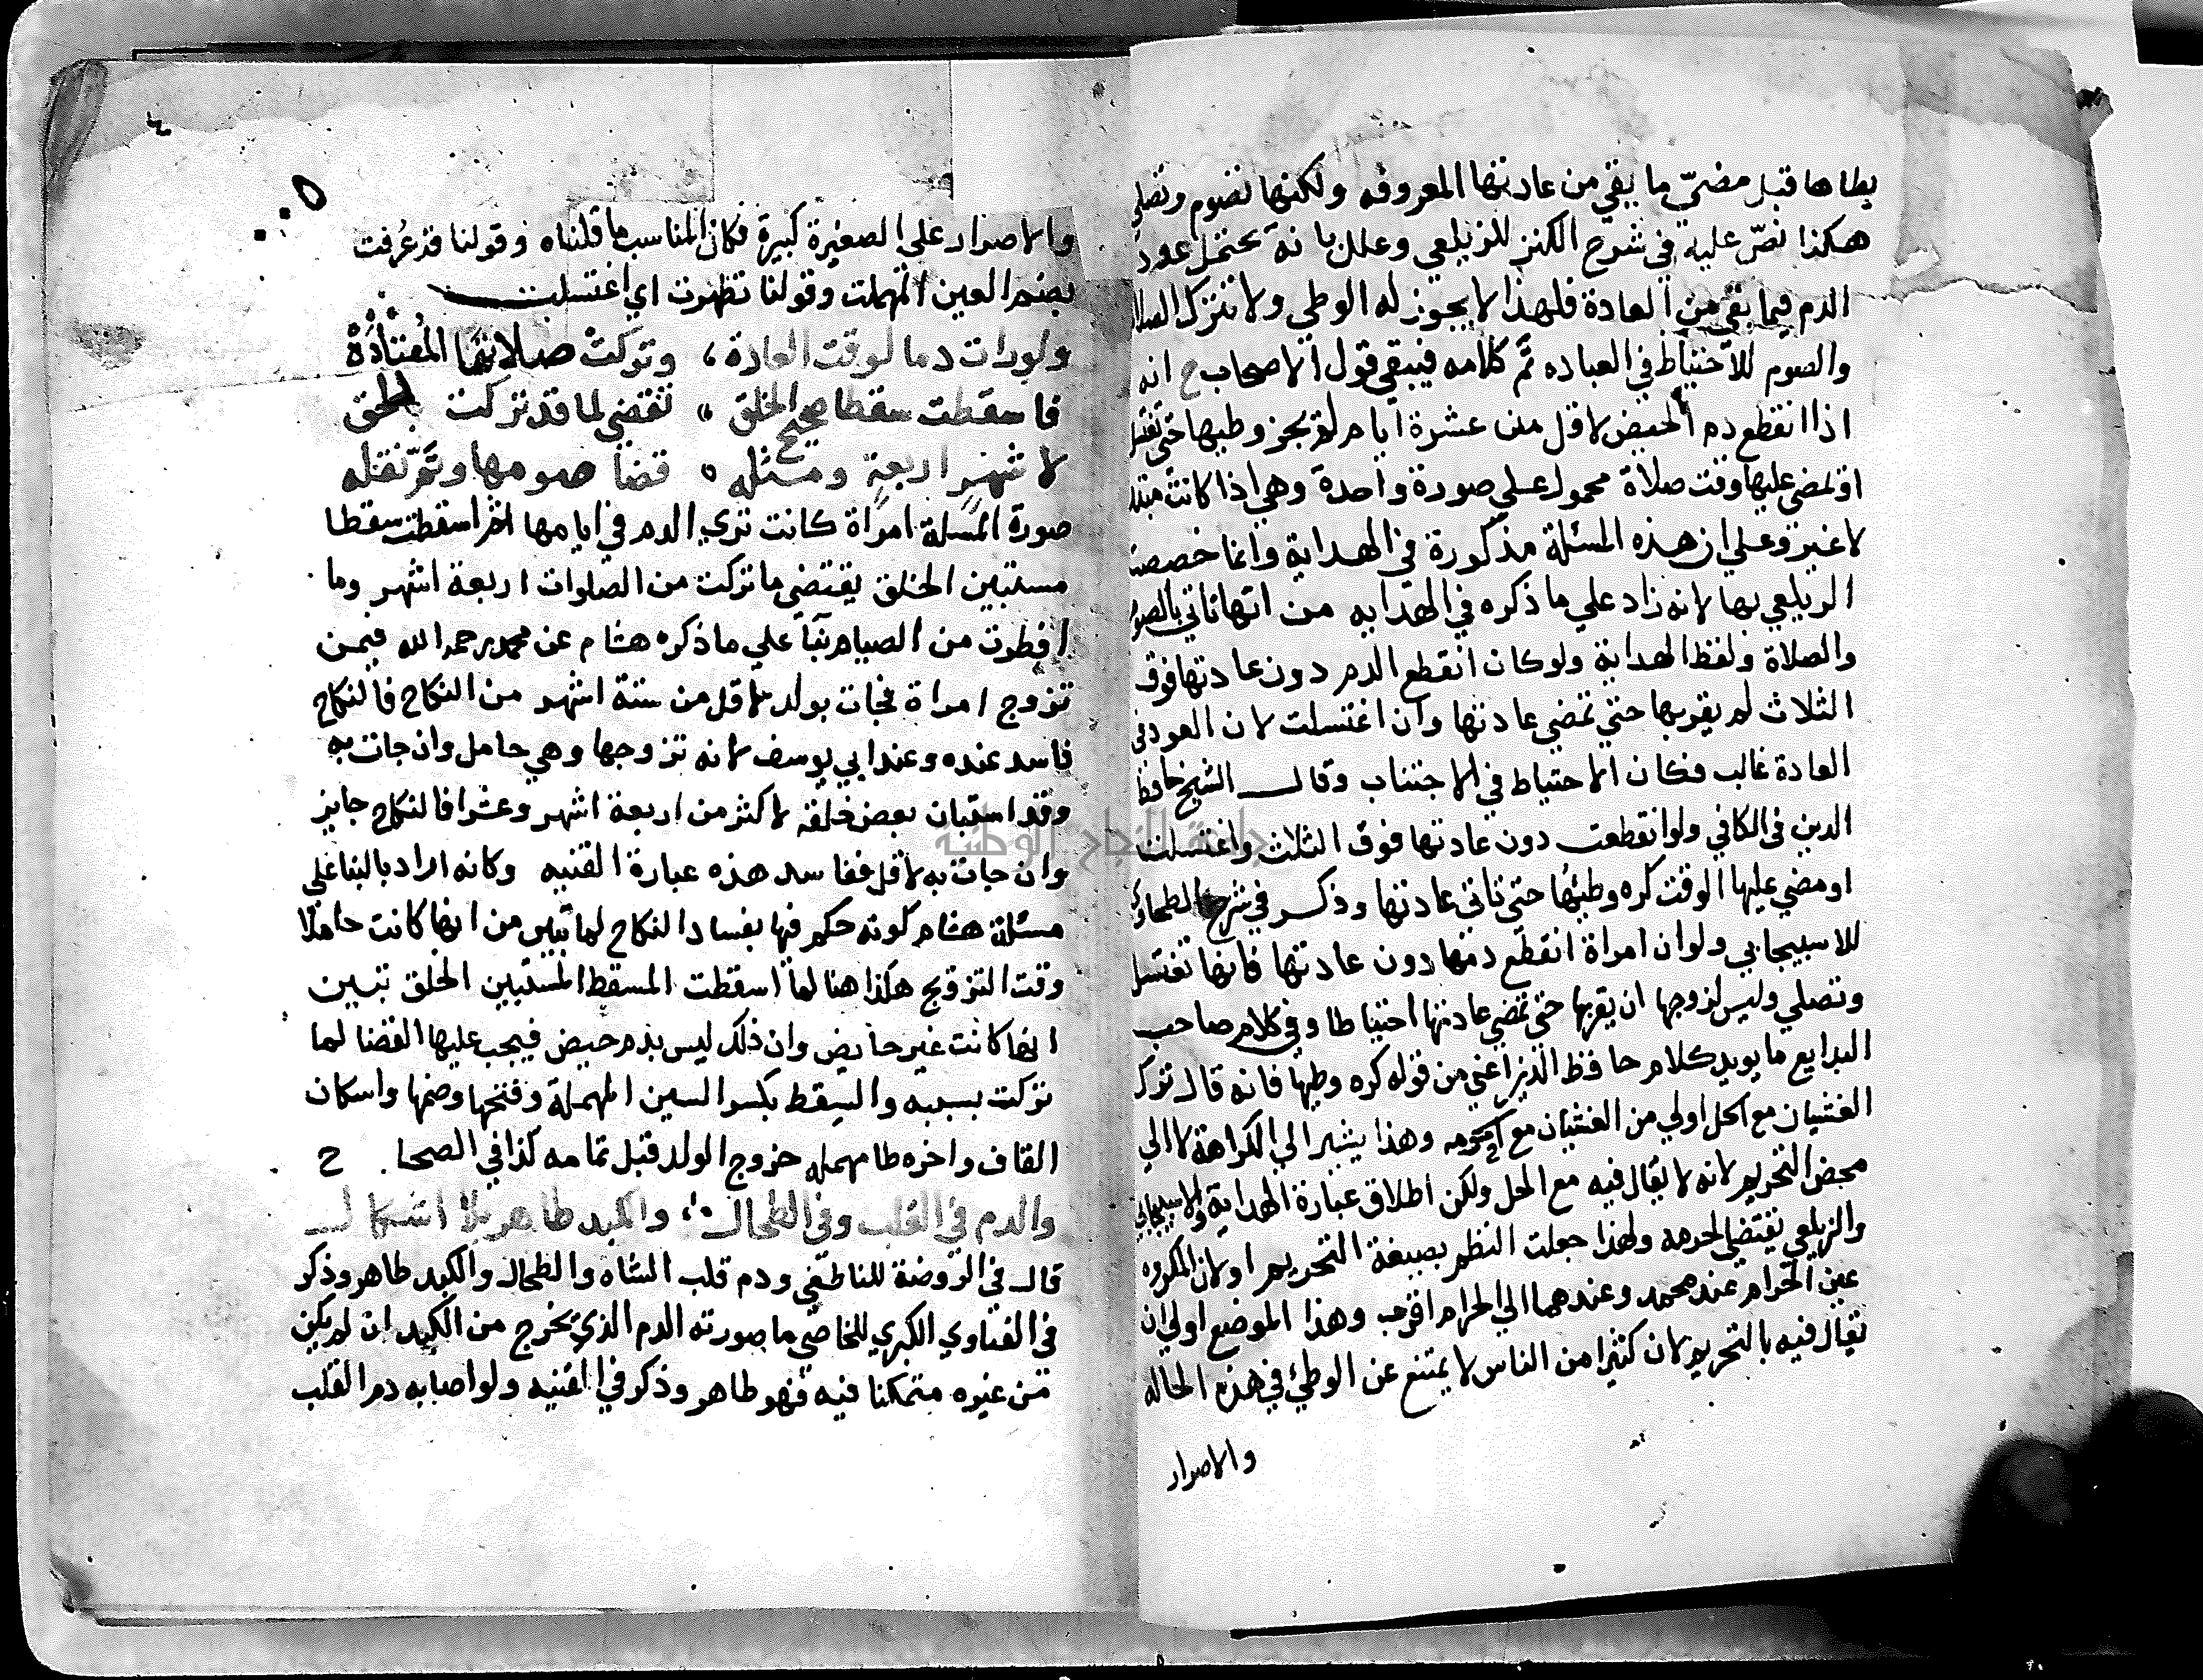 يطاها قبل مضيّ ما بقي من عادتها المعروفه ولكنها تصوم وتصلي
هكذا نصّ عليه في شرح الكنز للزيلعي وعلل بانه يحتمل عود
الدم فيما بقي من العادة فلهذا لا يجوز له الوطي ولا تترك الصلاة
والصوم للاحتياط في العباده تمّ كلامه فيبقي قول الاصحاب ح انه
اذا انقطع دم الحيض لاقل من عشرة ايام لم يجز وطيها حتى تغتسل
او يمضي عليها وقت صلاة محمول علي صورة واحدة وهي اذا كانت مبتداة
لا غير وعلي ان هذه المسئلة مذكورة في الهداية وانما خصصت
الزيلعي بها لانه زاد علي ما ذكره في الهدايه من انها تاتي بالصوم
والصلاة ولفظ الهداية ولو كان انقطع الدم دون عادتها فوق
الثلاث لم يقربها حتى تمضي عادتها وان اغتسلت لان العود في
العادة غالب فكان الاحتياط في الاجتناب وقال الشيخ حافظ
الدين في الكافي ولو انقطعت دون عادتها فوق الثلاث واغتسلت
او مضي عليها الوقت كره وطيها حتى تاتي عادتها وذكر في شرح الطحاوي
للاسبيجابي ولو ان امراة انقطع دمها دون عادتها فانها تغتسل
وتصلي وليس لزوجها ان يقربها حتى تمضي عادتها احتياطا وفي كلام صاحب
البدايع ما يويد كلام حافظ الدين اعني من قوله كره وطيها فانه قال ترك
الغشيان مع الحل اولي من الغشيان مع الحرمه وهذا يشير الي الكراهة لا الي
محض التحريم لانه لا يقال فيه مع الحل ولكن اطلاق عبارة الهداية والاسبيجابي
والزيلعي يقتضي الحرمه ولهذا جعلت النظم بصيغة التحريم او لان المكروه
عين الحرام عند محمد وعندهما الي الحرام اقرب وهذا الموضع اولي ان
يقال فيه بالتحريم لان كثيرا من الناس لا يمتنع عن الوطئ في هذه الحاله
والاصرار
والاصرار علي الصغيرة كبيرة فكان المناسب ما قلناه وقولنا قد عُرفت
بضم العين المهملت وقولنا تطهرت اي اغتسلت
ولو رات دما لوقت العادة ، وتركت صلاتها المُعتادَةْ
فاسقطت سقطا صحيح الخلق ، تقضي لما قد تركت بالحق
لاشهرٍ اربعةٍ ومثله ، قضا صومها وتمّ نقله
صورة المسلة امراة كانت تري الدم في ايامها ثم اسقطت سقطا
مستبين الخلق يقتضي ما تركت من الصلوات اربعة اشهر وما
افطرت من الصيام بنآ علي ما ذكره هشام عن محمد رحمه الله فيمن
تزوج امراة فجات بولد لاقل من ستة اشهر من النكاح فالنكاح
فاسد عنده وعند ابي يوسف لانه تزوجها وهي حامل وان جات به
وقد استبان بعض خلقه لاكثر من اربعة اشهر وعشرا فالنكاح جايز
وان جات به لاقل ففاسد هذه عبارة القنيه وكانه اراد بالبنا علي
مسئلة هشام كونه حكم فيها بفساد النكاح لما تبين من انها كانت حاملا
وقت التزويج هكذا هنا لما اسقطت المسقط المستبين الخلق تبين
انها كانت غير حايض وان ذلك ليس بدم حيض فيجب عليها القضا لما
تركت بسببه والسِقط بكسر السين المهملة وفتحها وضمها واسكان
القاف واخره طا مهمله خروج الولد قبل تمامه كذا في الصحاح
والدم في القلب وفي الطحال ، والكبد طاهر بلا اشكال
قال في الروضة للناطفي ودم قلب الشاه والطحال والكبد طاهر وذكر
في الفتاوي الكبري للخاصّي ما صورته الدم الذي يخرج من الكبد ان لم يكن
من غيره متمكنا فيه فهو طاهر وذكر في القنيه ولو اصابه دم القلب
جامعة النجاح الوطنية